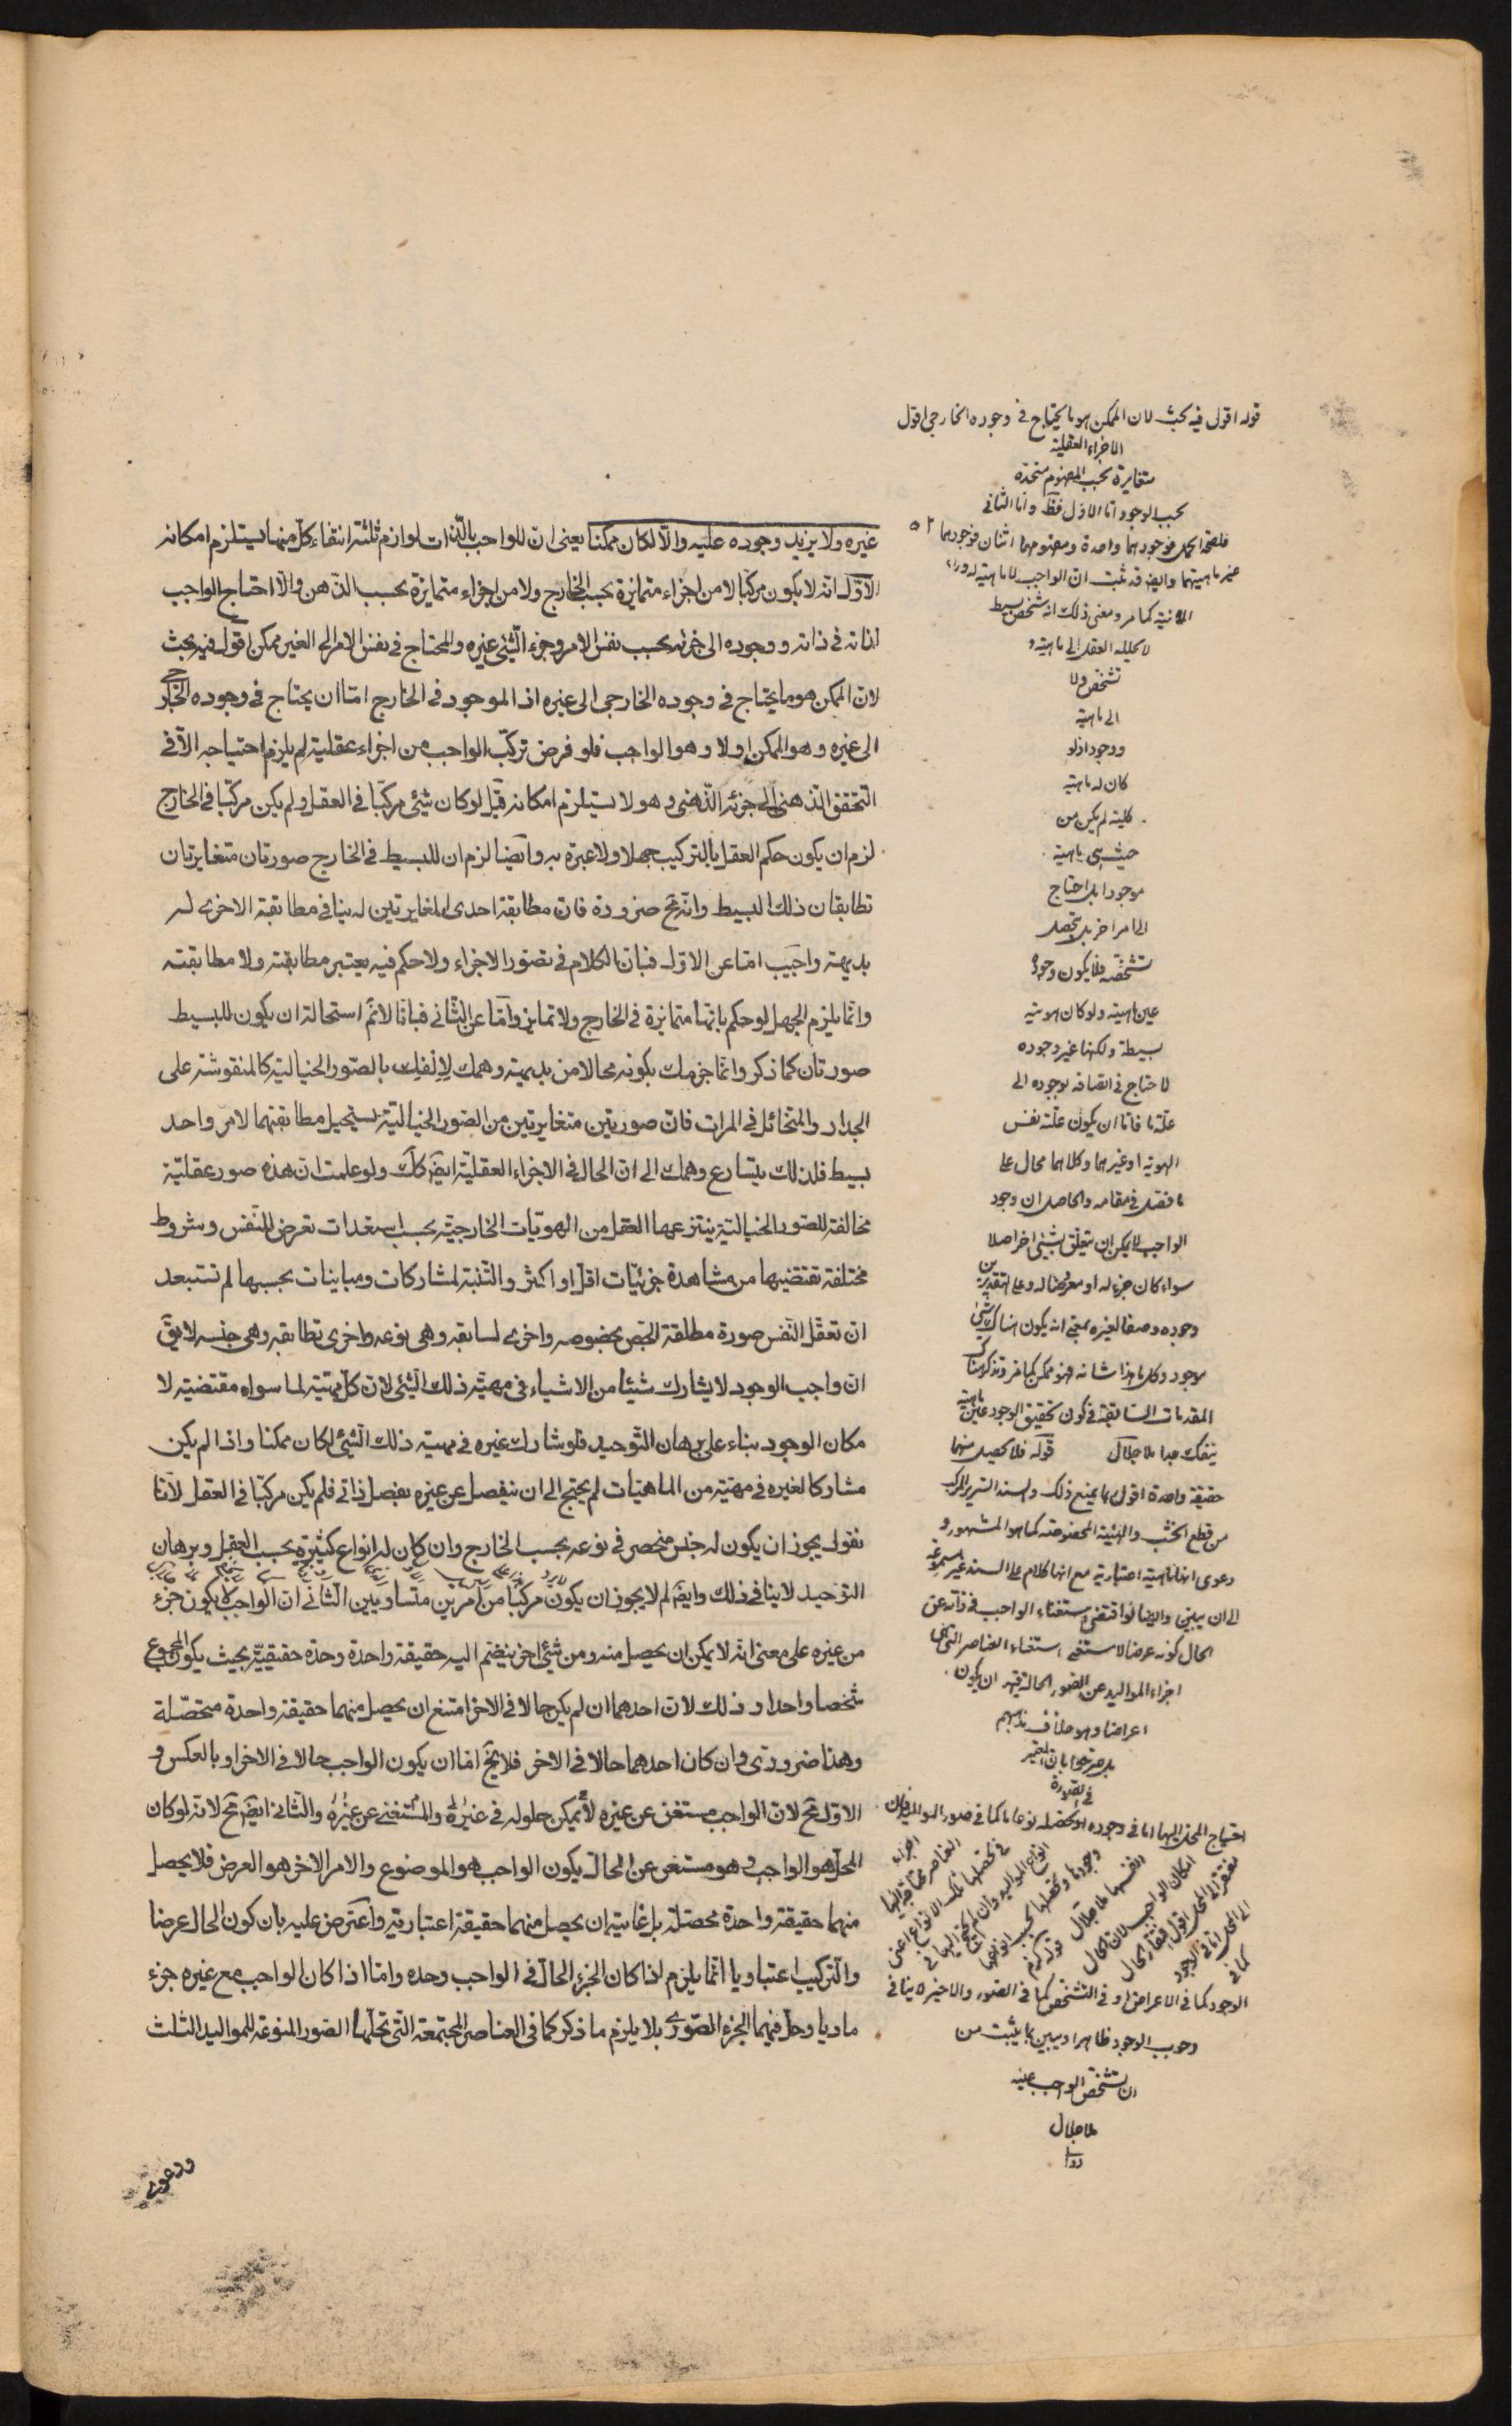 غيره ولا يزيد وجوده عليه والا لكان ممكنا يعنى ان للواجب بالذات لوازم ثلثة انتفاء كل منها يستلزم امكانه
الاول انه لا يكون مركبا لا من اجزاء متمايزة بحسب الخارج ولا من اجزاء متمايزة بحسب الذهن والا احتاج الواجب
لذاته فى ذاته ووجوده الى جزئه بحسب نفس الامر وجزء الشئ غيره والمحتاج فى نفس الامر الى الغير ممكن اقول فيه بحث
لان الممكن هو ما يحتاج فى وجوده الخارجى الى غيره اذ الموجود فى الخارج اما ان يحتاج فى وجوده الخارجى
الى غيره وهو الممكن اولا وهو الواجب فلو فرض تركب الواجب من اجزاء عقلية لم يلزم احتياجه الا فى
التحقق الذهنى الى جزئه الذهنى وهو لا يستلزم امكانه قيل لو كان شئ مركبا فى العقل ولم يكن مركبا فى الخارج
لزم ان يكون حكم العقل بالتركيب جهلا ولا عبرة به وايضا لزم ان للبسيط فى الخارج صورتان متغايرتان
تطابقان ذلك البسيط وانه مح ضرورة فان مطابقة احدى المغايرتين له ينافى مطابقة الاخرى له
بديهة واجيب اما عن الاول فبان الكلام فى تصور الاجزاء ولا حكم فيه يعتبر مطابقته ولا مطابقته
وانما يلزم الجهل لو حكم بانها متمايزة فى الخارج ولا تمايز واما عن الثانى فبانا لا نم استحالة ان يكون للبسيط
صورتان كما ذكر وانما جزمك بكونه محالا من بديهة وهمك لالفك بالصور الخيالية كالمنقوشة على
الجدار والمتخائل فى المرات فان صورتين متغايرتين من الصور الخيالية يستحيل مطابقتهما لامر واحد
بسيط فلذلك يتسارع وهمك الى ان الحال فى الاجزاء العقلية ايضا كك ولو علمت ان هذه صور عقلية
مخالفة للصور الخيالية ينتزعها العقل من الهويات الخارجية بحسب استعدادات تعرض للنفس وشروط
مختلفة تقتضيها من مشاهدة جزئيات اقل او اكثر والتنبه لمشاركات ومباينات بحسبها لم تستبعد
ان تعقل النفس صورة مطابقة لشخص بخصوصه واخرى لسابقه وهى نوعه واخرى تطابقه وهى جنسه لا يق
ان واجب الوجود لا يشارك شيئا من الاشياء فى مهية ذلك الشئ لان كل مهية لما سواه مقتضية لا
مكان الوجود بناء على برهان التوحيد فلو شارك غيره فى مهية ذلك الشئ لكان ممكنا واذا لم يكن
مشاركا لغيره فى مهية من الماهيات لم يحتج الى ان ينفصل عن غيره بفصل ذاتى فلم يكن مركبا فى العقل لانا
نقول يجوز ان يكون له جنس منحصر فى نوعه بحسب الخارج وان كان له انواع كثيرة بحسب العقل وبرهان
التوحيد لا ينافى ذلك وايضا لم لا يجوز ان يكون مركبا من امرين متساويين الثانى ان الواجب لا يكون جزء
من غيره على معنى انه لا يمكن ان يحصل منه ومن شئ اخر ينضم اليه حقيقة واحدة وحدة حقيقية بحيث يكون المجموع
شخصا واحدا وذلك لان احدهما ان لم يكن حالا فى الاخر امتنع ان يحصل منهما حقيقة واحدة متحصلة
وهذا ضرورى وان كان احدهما حالا فى الاخر فلا يخ اما ان يكون الواجب حالا فى الاخر او بالعكس و
الاول مح لان الواجب مستغن عن غيره لا يمكن حلوله فى غيره والمستغنى عن غيره والثانى ايضا مح لانه لو كان
المحل هو الواجب وهو مستغن عن الحال يكون الواجب هو الموضوع والامر الاخر هو العرض فلا يحصل
منهما حقيقة واحدة محصلة بل غايته ان يحصل منهما حقيقة اعتبارية واعترض عليه بان كون الحال عرضا
والتركيب اعتباريا انما يلزم اذا كان الجزء الحال فى الواجب وحده واما اذا كان الواجب مع غيره جزء
ماديا وحل فيهما الجزء الصورى بلا يلزم ما ذكر كما فى العناصر المجتمعة التى تحلها الصور المنوعة للمواليد الثلث
قوله اقول فيه بحث لان الممكن هو ما يحتاج فى وجوده الخارجى اقول
الاجزاء العقلية
متغايرة بحسب المفهوم متحدة
بحسب الوجود اما الاول فظ واما الثانى
فلصحة الحمل فوجودهما واحدة ومفهومهما اثنان فوجودهما
غير ماهيتهما وايضا قد ثبت ان الواجب لا ماهية له وراء
الانية كما مر ومعنى ذلك انه شخص بسيط
لا يحلله العقل الى ماهية و
تشخص ولا
الى ماهية
ووجود اذ لو
كان له ماهية
كلية لم يكن من
حيث هى ماهية
موجودا بل احتاج
الى امر اخر بل تحصل
تشخصه فلا يكون وجوده
عين ماهيته ولو كان هويته
بسيطة ولكنها غير وجوده
لاحتاج فى اتصافه بوجوده الى
علة ما فاما ان يكون علته نفس
الهوية او غيرها وكلاهما محال على
ما فصل فى مقامه والحاصل ان وجود
الواجب لا يمكن ان يتعلق بشئ اخر اصلا
سواء كان جزء له او معروضا له وعلى التقديرين
وجوده وصفا لغيره بمعنى انه يكون هناك شئ
موجود وكل ما هذا شانه فهو ممكن كما مر وتذكر هنا
المقدمات السابقة فى كون تحقيق الوجود عين ماهية
ينفك جدا ملا جلال قوله فلا يحصل منهما
حقيقة واحدة اقول ربما يمنع ذلك والسند السرير المركب
من قطع الخشب والهيئة المخصوصة كما هو المشهور و
دعوى انها ماهية اعتبارية مع انها كلام على السند غير مسموعة
الى ان يبين وايضا لو اقتضى استغناء الواجب فى ذاته عن
الحال كونه عرضا لاستغنى استغناء العناصر التى هى
اجزاء المواليد عن الصور الحالة فيها ان يكون
اعراضا وهو خلاف مذهبهم
بل صرحوا بان المعتبر
فى الصورة
احتياج المحل اليها اما فى وجوده او تحصله نوعا ما كما فى صور المواليد فان
الوجود كما فى الاعراض او فى التشخص كما فى الصور والاخير لا ينافى
وجوب الوجود ظاهرا ويبين بما يثبت من
ان تشخص الواجب عينه
ملا جلال
دوا
ودعوى